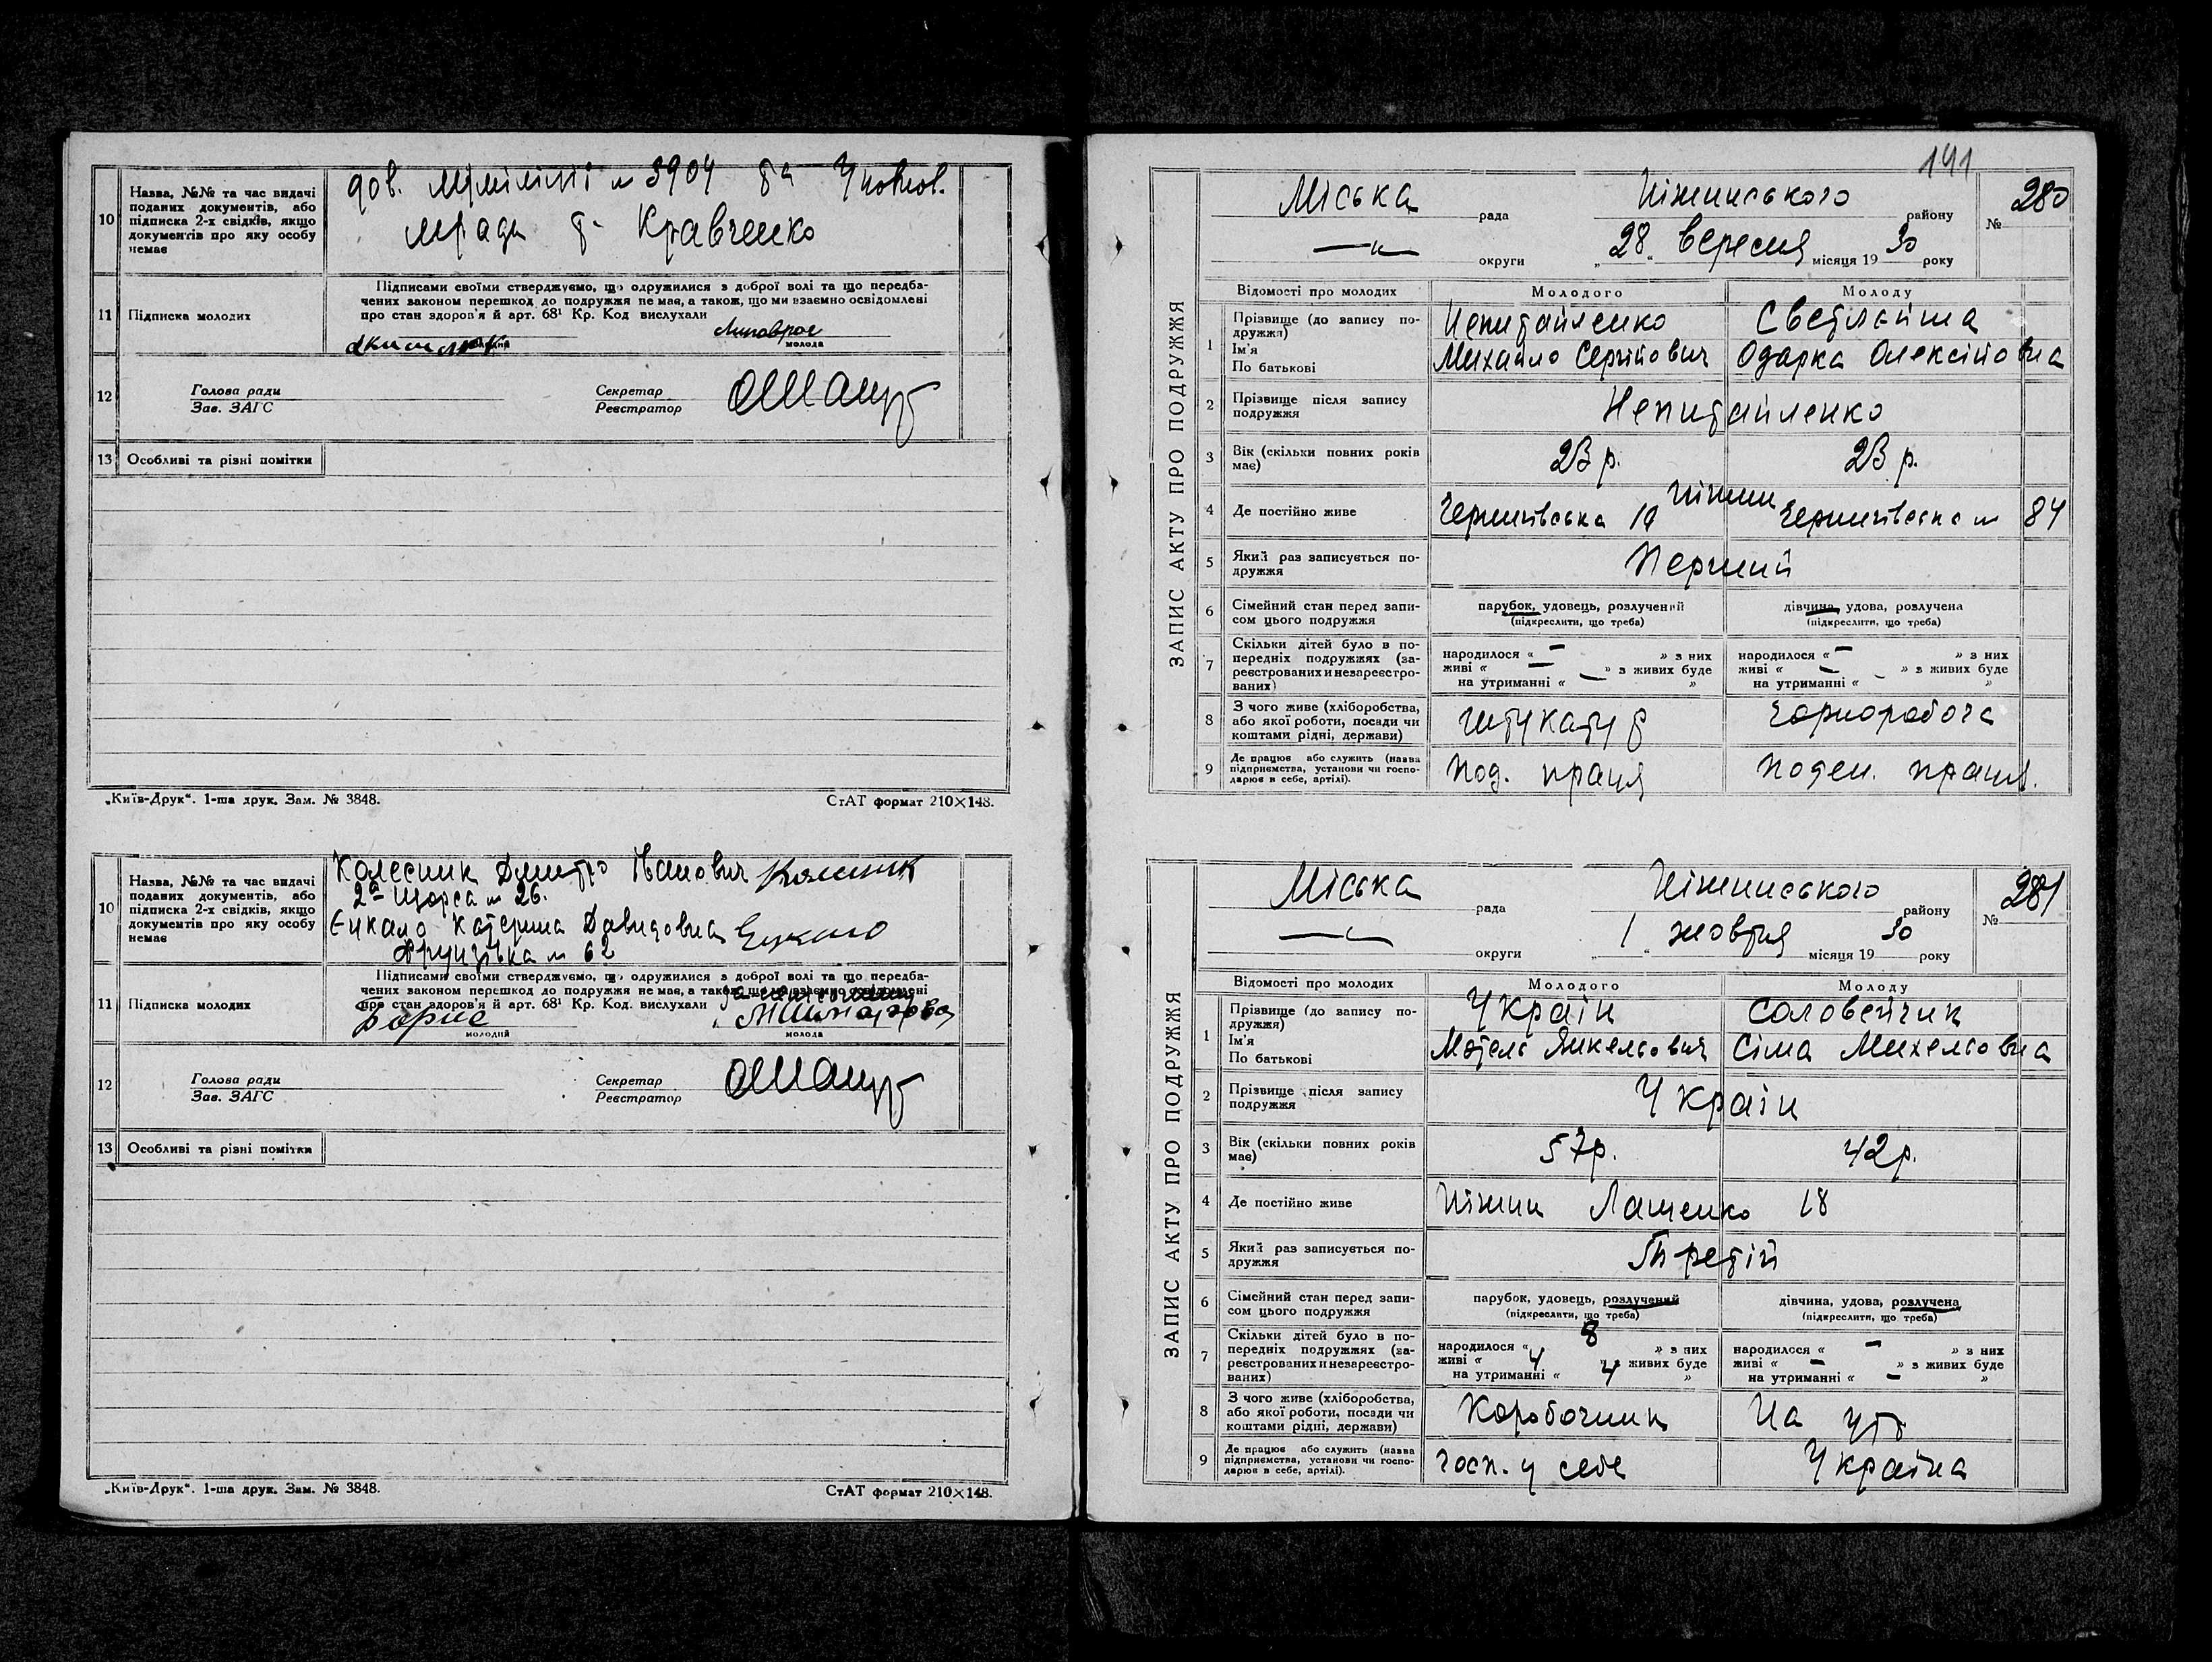 10
Назва, №№ та час видачі
поданих документів, або
підписка 2-х свідків, якщо
документів про яку особу
немає
дов. Мміліції № 3904 та
мради т. Кравченко
11
Підписка молодих
Підписами своїми стверджуємо, що одружилися з доброї волі та що передба-
чених законом перешкод до подружжя не має, а також, що ми взаємно освідомлені
про стан здоров'я й арт. 68¹ Кр. Код вислухали
молода
12
Голова ради
Зав. ЗАГС
Секретар
Реєстратор
13
Особливі та різні помітки
„Київ-Друк“. 1-ша друк. Зам. № 3848.
СтАТ формат 210×148.
10
Назва, №№ та час видачі
поданих документів, або
підписка 2-х свідків, якщо
документів про яку особу
немає
Колесник Дмитро Іванович Колесник
2а Щорса № 26.
Єцкало Катерина Давидовна Ецкало
Фрунзівка № 62
11
Підписка молодих
Підписами своїми стверджуємо, що одружилися з доброї волі та що передба-
чених законом перешкод до подружжя не має, а також, що ми взаємно освідомлені
про стан здоров'я й арт. 68¹ Кр. Код. вислухали
Борис
молодий
молода
12
Голова ради
Зав. ЗАГС
Секретар
Реєстратор
13
Особливі та різні помітки
„Київ-Друк“. 1-ша друк. Зам. № 3848.
СтАТ формат 210×148.
141
ЗАПИС АКТУ ПРО ПОДРУЖЖЯ
Міська рада Ніжинського району № 280
—"— округи „28“ вересня місяця 1930 року
Відомості про молодих
Молодого
Молоду
1
Прізвище (до запису по-
дружжя)
Ім'я
По батькові
Непитайленко
Михайло Сергійович
Светлайша
Одарка Олексійовна
2
Прізвище після запису
подружжя
Непитайленко
3
Вік (скільки повних років
має)
23 р.
23 р.
4
Де постійно живе
Ніжин
Чернигівська 19
Чернигівська № 84
5
Який раз записується по-
дружжя
Перший
6
Сімейний стан перед запи-
сом цього подружжя
парубок, удовець, розлучений
(підкреслити, що треба)
дівчина, удова, розлучена
(підкреслити, що треба)
7
Скільки дітей було в по-
передніх подружжях (за-
реєстрованих и незареєстро-
ваних)
народилося « – » з них
живі « – » з живих буде
на утриманні « – »
народилося « – » з них
живі « – » з живих буде
на утриманні « – »
8
З чого живе (хліборобства,
або якої роботи, посади чи
коштами рідні, держави)
штукатур
чорноробоча
9
Де працює або служить (назва
підприємства, установи чи госпо-
дарює в себе, артілі).
Под. праця
Поден. праця.
ЗАПИС АКТУ ПРО ПОДРУЖЖЯ
Міська рада Ніжинського району № 281
—"— округи „1“ жовтня місяця 1930 року
Відомості про молодих
Молодого
Молоду
1
Прізвище (до запису по-
дружжя)
Ім'я
По батькові
Україн
Мотель Янкельович
Соловейчик
Сіма Михельовна
2
Прізвище після запису
подружжя
Україн
3
Вік (скільки повних років
має)
57р.
42р.
4
Де постійно живе
Ніжин Лашенко 18
5
Який раз записується по-
дружжя
Третій
6
Сімейний стан перед запи-
сом цього подружжя
парубок, удовець, розлучений
(підкреслити, що треба)
дівчина, удова, розлучена
(підкреслити, що треба)
7
Скільки дітей було в по-
передніх подружжях (за-
реєстрованих и незареєстро-
ваних)
народилося « 8 » з них
живі « 4 » з живих буде
на утриманні « 4 »
народилося « – » з них
живі « – » з живих буде
на утриманні « – »
8
З чого живе (хліборобства,
або якої роботи, посади чи
коштами рідні, держави)
Коробочник
На утр
9
Де працює або служить (назва
підприємства, установи чи госпо-
дарює в себе, артілі).
госп. у себе
Україна